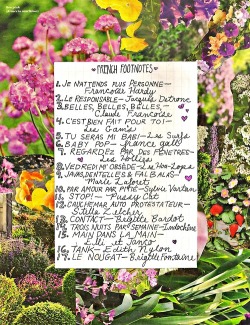 ♥FRENCH FOOTNOTES♥
1. JE N'ATTENDS PLUS PERSONNE-
Francoise Hardy
2. LE RESPONSABLE- Jacques Dutronc
3. BELLES, BELLES, BELLES,-
Claude Francoise
4. C'EST BIEN FAIT POUR TOI-
Les Gam's
5. TU SERAS MI BABI- Les Surfs
6. BABY POP- france gall
7. REGARDEZ PAR DES FENETRES-
Les Lollips
8. VEDREDI M'OBSÈDE-
9. VIVRES DENTELLES & FALBALAS-
Marie Laforet
10. PAR AMOUR PAR PITIE- Sylvie Vartan
11. STOP!- Pussy Cat
12. CAUCHEMAR AUTO PROTESTATEUR-
Stella Zelcher
13. CONTACT- Brigitte Bardot
14. TROIS NUITS PAR SEMAINE- Indochine
15. MAIN DANS LA MAIN-
Elli et Jacno
16. TANK- Edith Nylon
17. LE NOUGAT- Brigitte Fontaine